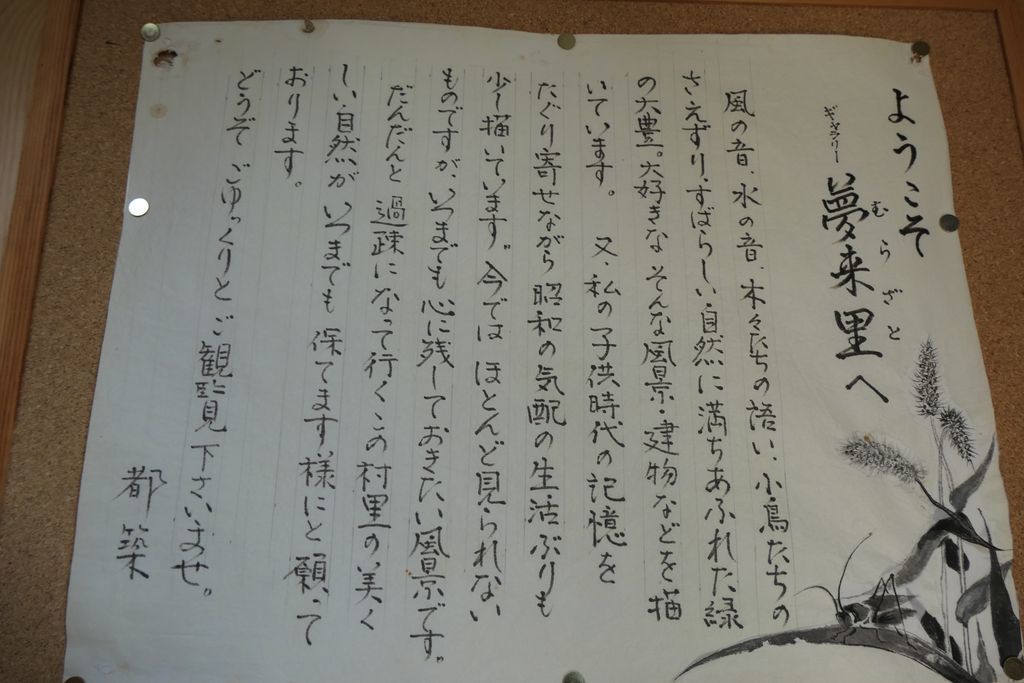 ようこそ
ギャラリー
夢来里へ
むらざと
風の音、水の音、木々たちの語い、小鳥たちの
さえずり、すばらしい自然に満ちあふれた緑
の大豊。大好きな そんな風景・建物などを描
いています。 又、私の子供時代の記憶を
たぐり寄せながら昭和の気配の生活ぶりも
少し描いています。今では ほとんど見られない
ものですが、いつまでも心に残しておきたい風景です。
だんだんと 過疎になって行くこの村里の美く
しい自然が いつまでも 保てます様にと 願って
おります。
どうぞ ごゆっくりと ご観覧下さいませ。
都築